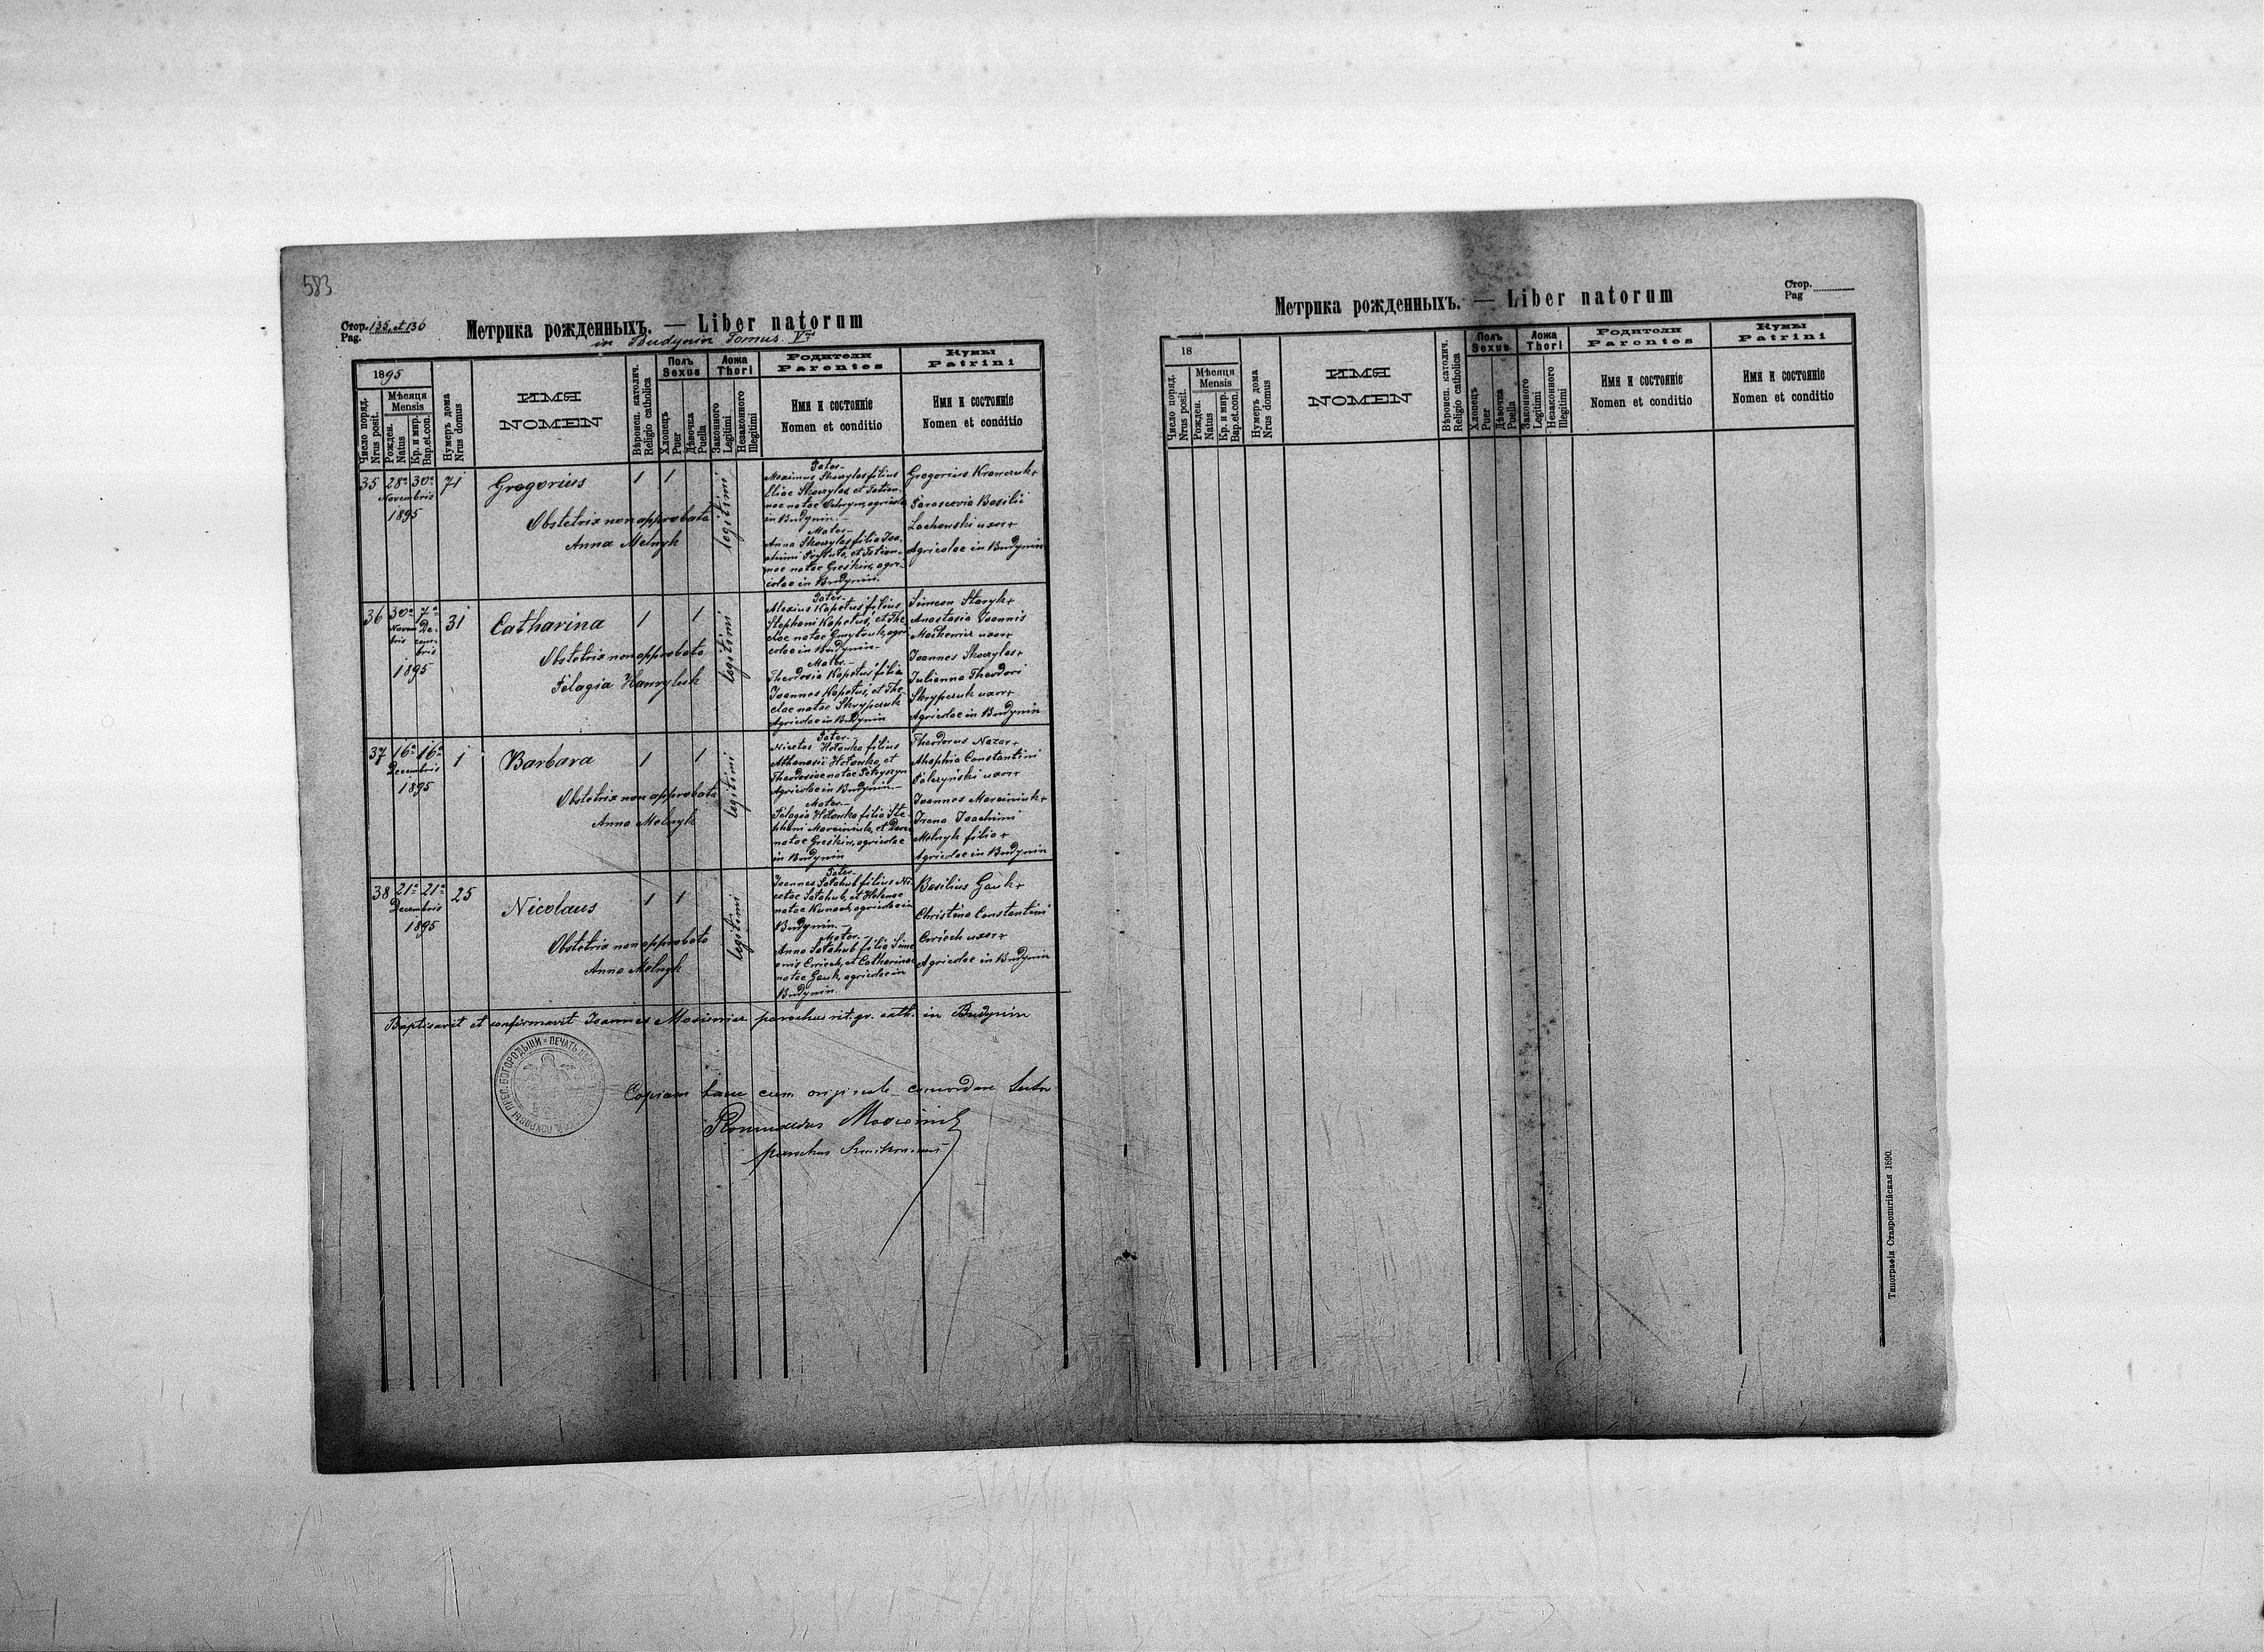 583
Стор. 135 et 136
Pag.
Метрика рожденныхъ. — Liber natorum
in Budynin Tomus V
1895
Число поряд.
Nrus posit.
Мѣсяця
Mensis
Рожден.
Natus
Кр. и мир.
Bap.et.con.
Нумеръ дома
Nrus domus
ИМЯ
NOMEN
Вѣроисп. католич.
Religio catholica
Полъ
Sexus
Хлопецъ
Puer
Дѣвочка
Puella
Ложа
Thori
Законного
Legitimi
Незаконного
Illegitimi
Родители
Parentes
Имя и состояніе
Nomen et conditio
Кумы
Patrini
Имя и состояніе
Nomen et conditio
35 28a 30a 71 Gregorius 1 1 legitimi
Novembris
1895
Obstetrix non approbata
Anna Melnyk
Pater
Maximus Skoczylas filius
Eliae Skoczylas et Tatian-
nae natae agricolae
in Budynin
Mater
Anna Skoczylas filia Joa-
chimi et Tatian-
nae natae Greskiw, agri-
colae in Budynin.
Gregorius Krawczuk+
Parascevia Basilii
Lachowski uxor+
Agricolae in Budynin
36 30a 7a 31 Catharina 1 1 legitimi
Novem De-
bris cem-
bris
1895
Obstetrix non approbata
Pelagia Hawryluk
Pater
Alexius Kapetus filius
Stephani Kapetus, et The-
clae natae Dmytruk, agri-
colae in Budynin
Mater
Theodosia Kapetus filia
Joannes Kapetus, et The-
clae natae Skrypczuk
Agricolae in Budynin
Simeon Staryk+
Anastasia Joannis
Maikowicz uxor+
Joannes Skoczylas+
Julianna Theodori
Skrypczuk uxor+
Agricolae in Budynin
37 16a 16a 1 Barbara 1 1 legitimi
Decembris
1895
Obstetrix non approbata
Anna Melnyk
Pater
Nicetas Hołowka filius
Athanasii Hołowka, et
Theodosiae natae Petryszyn
Agricolae in Budynin
Mater
Pelagia Hołowka filia Ste-
phani Marciniuk, et
natae Greskiw, agricolae
in Budynin
Theodorus Nazar+
Ahaphia Constantini
Palczyński uxor+
Joannes Marciniuk+
Irena Joachimi
Melnyk filia+
Agricolae in Budynin
38 21a 21a 25 Nicolaus 1 1 legitimi
Decembris
1895
Obstetrix non approbata
Anna Melnyk
Pater
Joannes Sołohub filius Ni-
cetae Sołohub, et Helenae
natae Kunach, agricolae in
Budynin.
Mater
Anna Sołohub filia Sime-
onis Cwiech, et Catharinae
natae Gauk, agricolae in
Budynin.
Basilius Gauk+
Christina Constantini
Cwiech uxor+
Agricolae in Budynin
Baptisavit et confirmavit Joannes parochus rit. gr. cath. in Budynin
Copiam hanc cum originali concordare testor
parochus
Метрика рожденныхъ. — Liber natorum
Стор.
Pag
18
Число поряд.
Nrus posit.
Мѣсяця
Mensis
Рожден.
Natus
Кр. и мир.
Bap.et.con.
Нумеръ дома
Nrus domus
ИМЯ
NOMEN
Вѣроисп. католич.
Religio catholica
Полъ
Sexus
Хлопецъ
Puer
Дѣвочка
Puella
Ложа
Thori
Законного
Legitimi
Незаконного
Illegitimi
Родители
Parentes
Имя и состояніе
Nomen et conditio
Кумы
Patrini
Имя и состояніе
Nomen et conditio
Типографія Ставропигійская 1890.